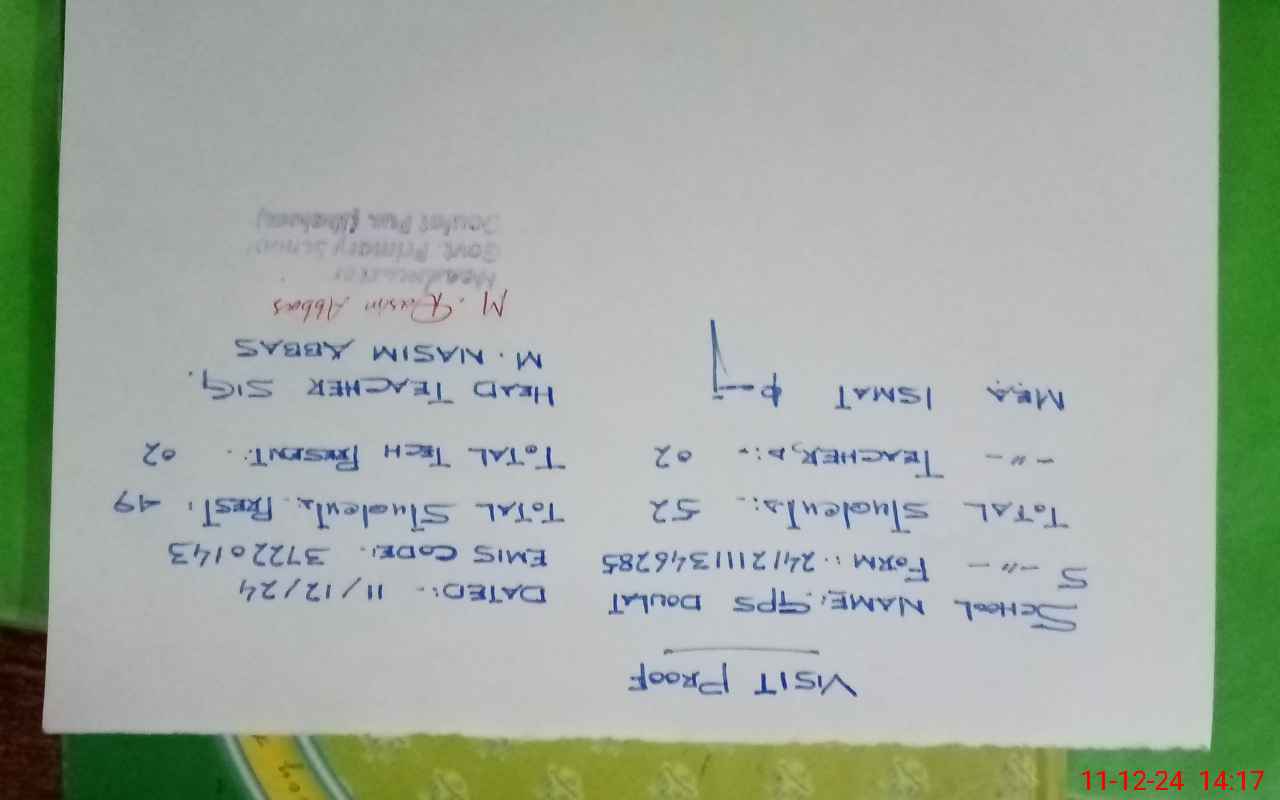 VISIT PROOF
SCHOOL NAME: GPS DOULAT DATED:- 11/12/24
S -"- FORM :- 24121111346285 EMIS CODE:- 37220143
TOTAL Students:- 52 TOTAL Students PREST: 49
-"- TEACHERS:- 02 TOTAL TECH PRESENT:- 02
MEA ISMAT HEAD TEACHER SIG.
M. NASIM ABBAS
M. Abbas
Headmaster
Govt. Primary School
11-12-24 14:17